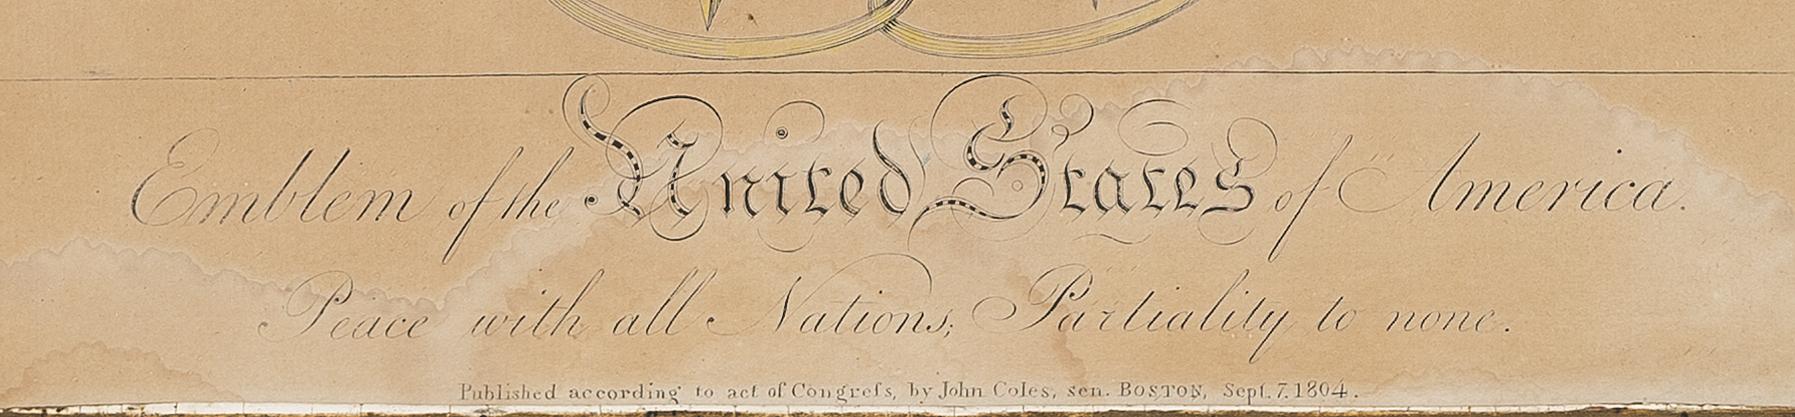 Emblem of the United States of America.
Peace with all Nations; Partiality to none.
Published according to act of Congreſs, by John Coles, sen. BOSTON, Sept. 7. 1804.